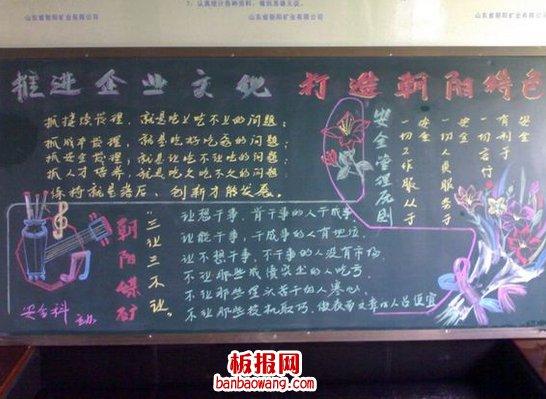 山东省朝阳矿业有限公司
山东省朝阳矿业有限公司
山东省朝阳矿业有限公司
推进企业文化 打造朝阳特色
抓接续管理，就是吃上吃不上的问题；
抓成本管理，就是吃好吃孬的问题；
抓安全管理，就是让吃不让吃的问题；
抓人才培养，就是吃久吃不久的问题；
保持就是落后，创新才能发展。
安全管理原则
一切工作服从于
安全
一切人员服务于
安全
一切言行
有利于
朝阳煤矿
“三让三不让”
让想干事、肯干事的人干成事
让能干事、干成事的人有地位
让不想干事、不干事的人没有市场
不让那些成绩突出的人吃亏
不让那些埋头苦干的人寒心
不让那些投机取巧、做表面文章的人占便宜
安全科 主办
板报网
banbaowang.com